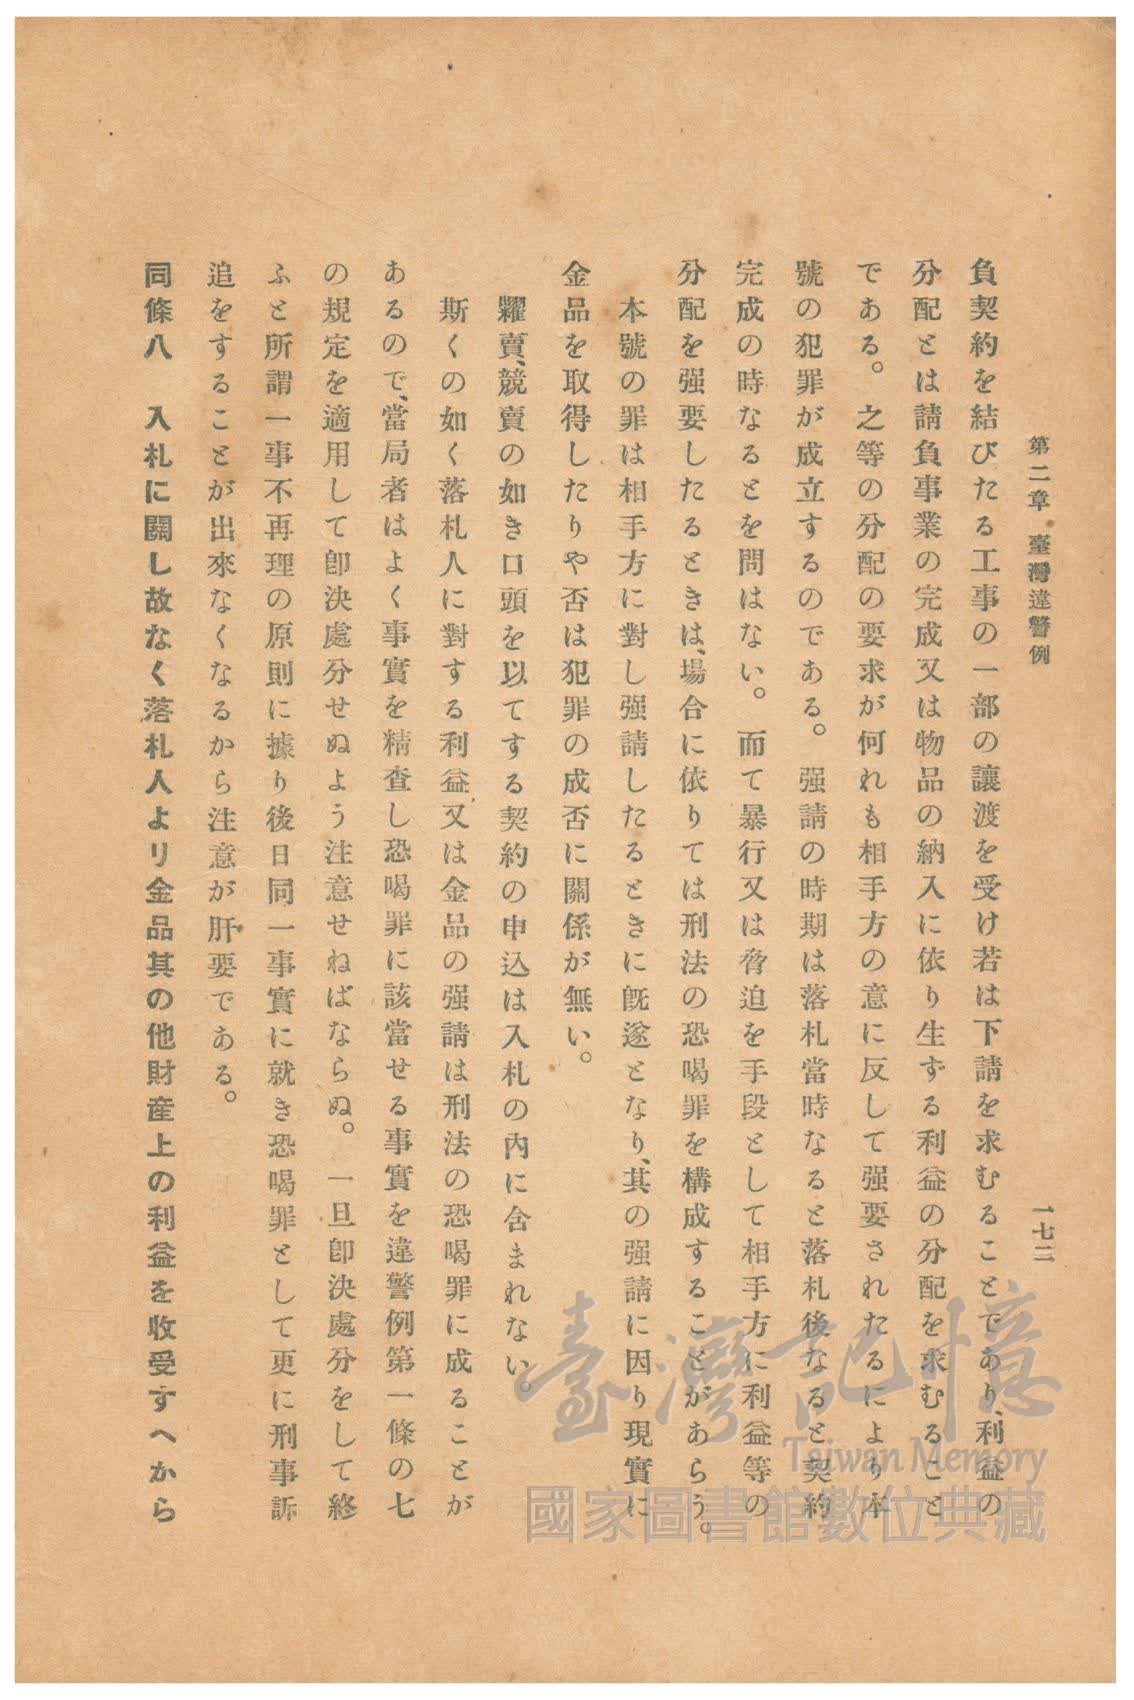 第二章　臺灣違警例
一七二
負契約を結びたる工事の一部の讓渡を受け若は下請を求むることであり、利益の
分配とは請負事業の完成又は物品の納入に依り生ずる利益の分配を求むること
である。之等の分配の要求が何れも相手方の意に反して强要されたるにより本
號の犯罪が成立するのである。强請の時期は落札當時なると落札後なると契約
完成の時なるとを問はない。而て暴行又は脅迫を手段として相手方に利益等の
分配を强要したるときは、場合に依りては刑法の恐喝罪を構成することがあらう。
本號の罪は相手方に對し强請したるときに旣遂となり、其の强請に因り現實に
金品を取得したりや否は犯罪の成否に關係が無い。
糶賣、競賣の如き口頭を以てする契約の申込は入札の內に含まれない。
斯くの如く落札人に對する利益又は金品の强請は刑法の恐喝罪に成ることが
あるので、當局者はよく事實を精査し恐喝罪に該當せる事實を違警例第一條の七
の規定を適用して卽決處分せぬよう注意せねばならぬ。一旦卽決處分をして終
ふと所謂一事不再理の原則に據り後日同一事實に就き恐喝罪として更に刑事訴
追をすることが出來なくなるから注意が肝要である。
同條八　入札に關し故なく落札人より金品其の他財產上の利益を收受すへから
臺灣記憶
Taiwan Memory
國家圖書館數位典藏